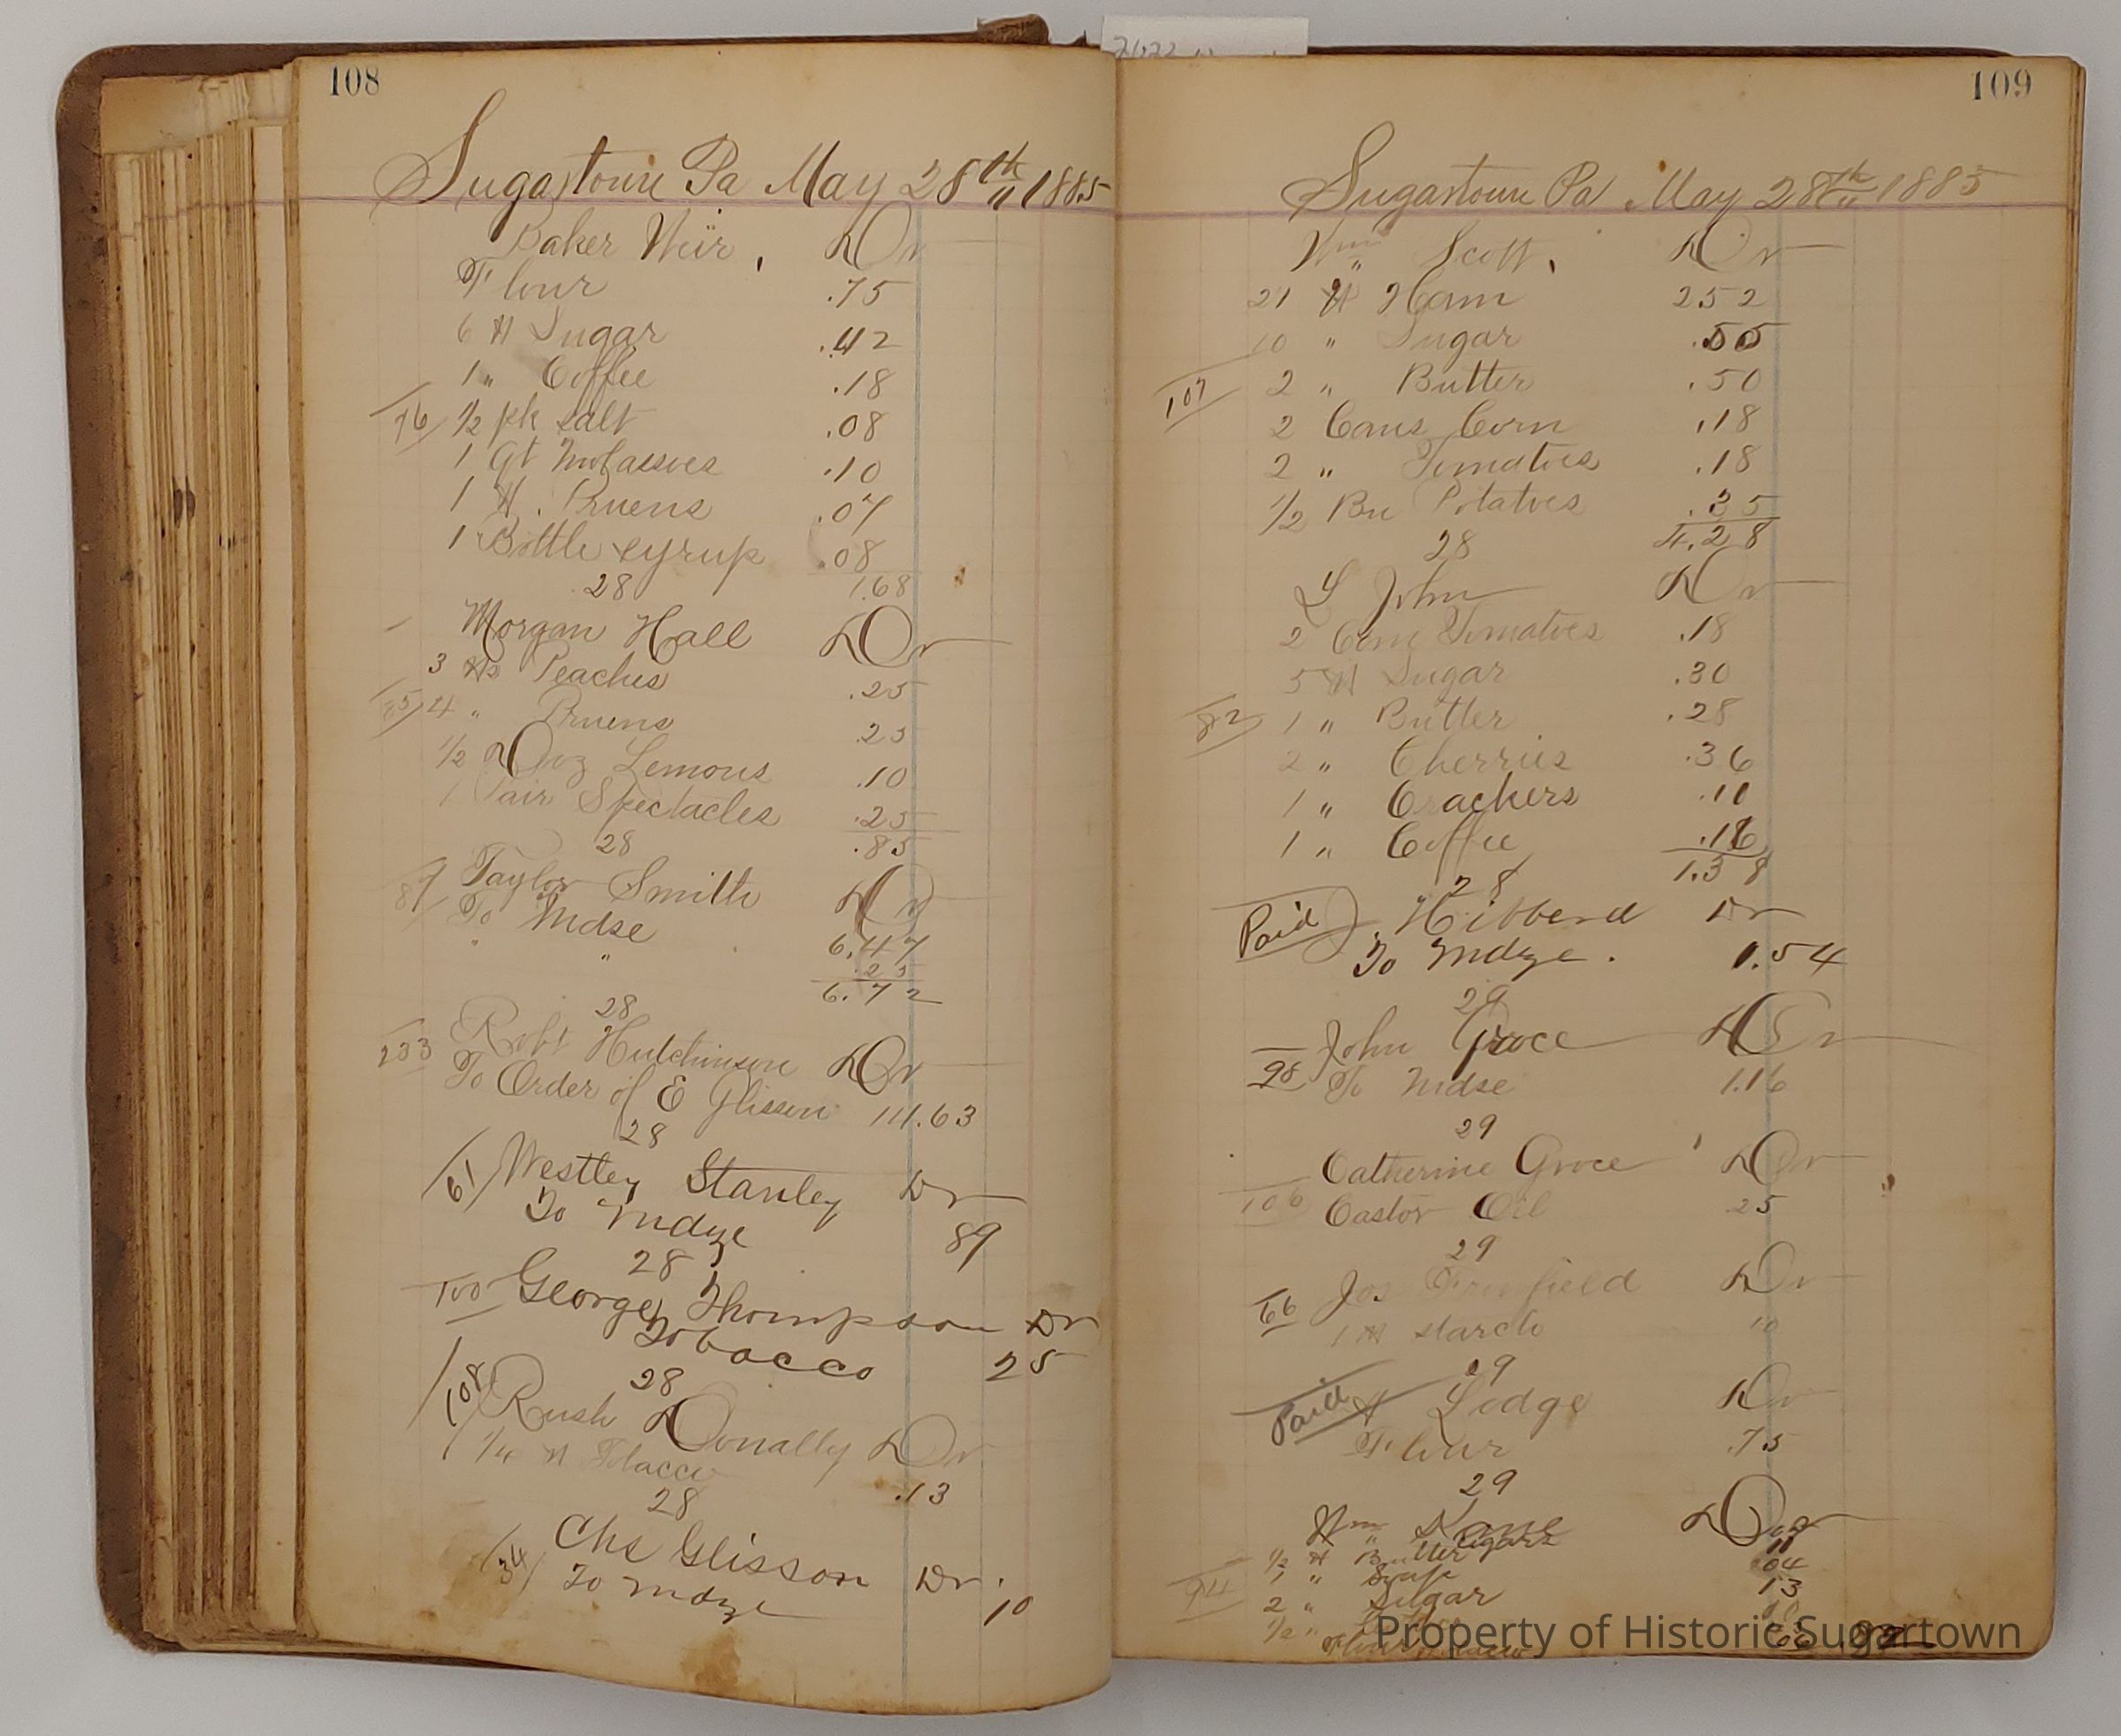 108
Sugartown Pa May 28th 1885
Baker Weir, Dr
Flour .75
6 # Sugar .42
1 " Coffee .18
76 1/2 pk salt .08
1 Qt Molasses .10
1 #. Pruens .07
1 Bottle syrup .08
28 1.68
Morgan Hall Dr
3 #s Peaches .25
85 4 " Pruens .25
1/2 Doz Lemons .10
1 Pair Spectacles .25
28 .85
89 Taylor Smith Dr
To Mdse 6.47
" " .25
6.72
28
233 Robt Hutchinson Dr
To Order of E Glisson 111.63
28
61 Westley Stanley Dr
To Mdze 89
28
100 George Thompson Dr
Tobacco 25
28
108 Rush Donally Dr
1/4 # Tobacco .13
28
34 Chs Glisson Dr
To Mdze .10
109
Sugartown Pa May 28th 1885
Wm Scott, Dr
21 # Ham 252
10 " Sugar .55
107 2 " Butter .50
2 Cans Corn .18
2 " Tomatoes .18
1/2 Bu Potatoes .35
28 4.28
L John Dr
2 Cans Tomatoes .18
5 # Sugar .30
82 1 " Butter .28
2 " Cherries .36
1 " Crackers .10
1 " Coffee .16
28 1.38
Paid Hibberd Dr
To Mdze. 1.54
29
John Groce Dr
98 To Mdse 1.16
29
Catherine Groce Dr
106 Castor Oil 25
29
66 Jos Dr
1 # starch 10
29
Paid H Lodge Dr
Flour .75
29
Wm Kane Dr
Cigars
1/2 # Butter 11
1 " Soap 04
94 2 " Sugar 13
1/2 "
Property of Historic Sugartown